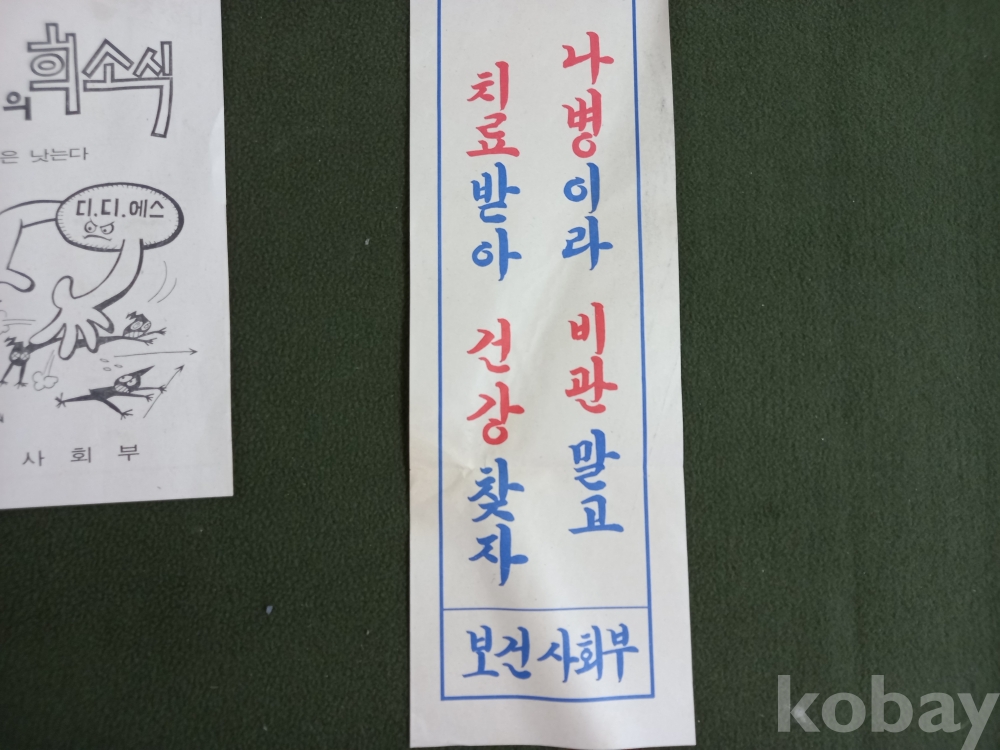 의 희소식
은 낫는다
디.디.에스
사회부
나병이라 비관 말고
치료받아 건강 찾자
보건사회부
kobay